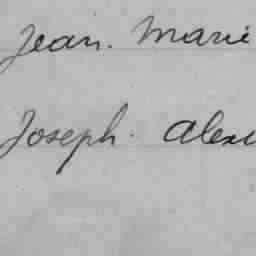 Jean. Marie
Joseph. Alex